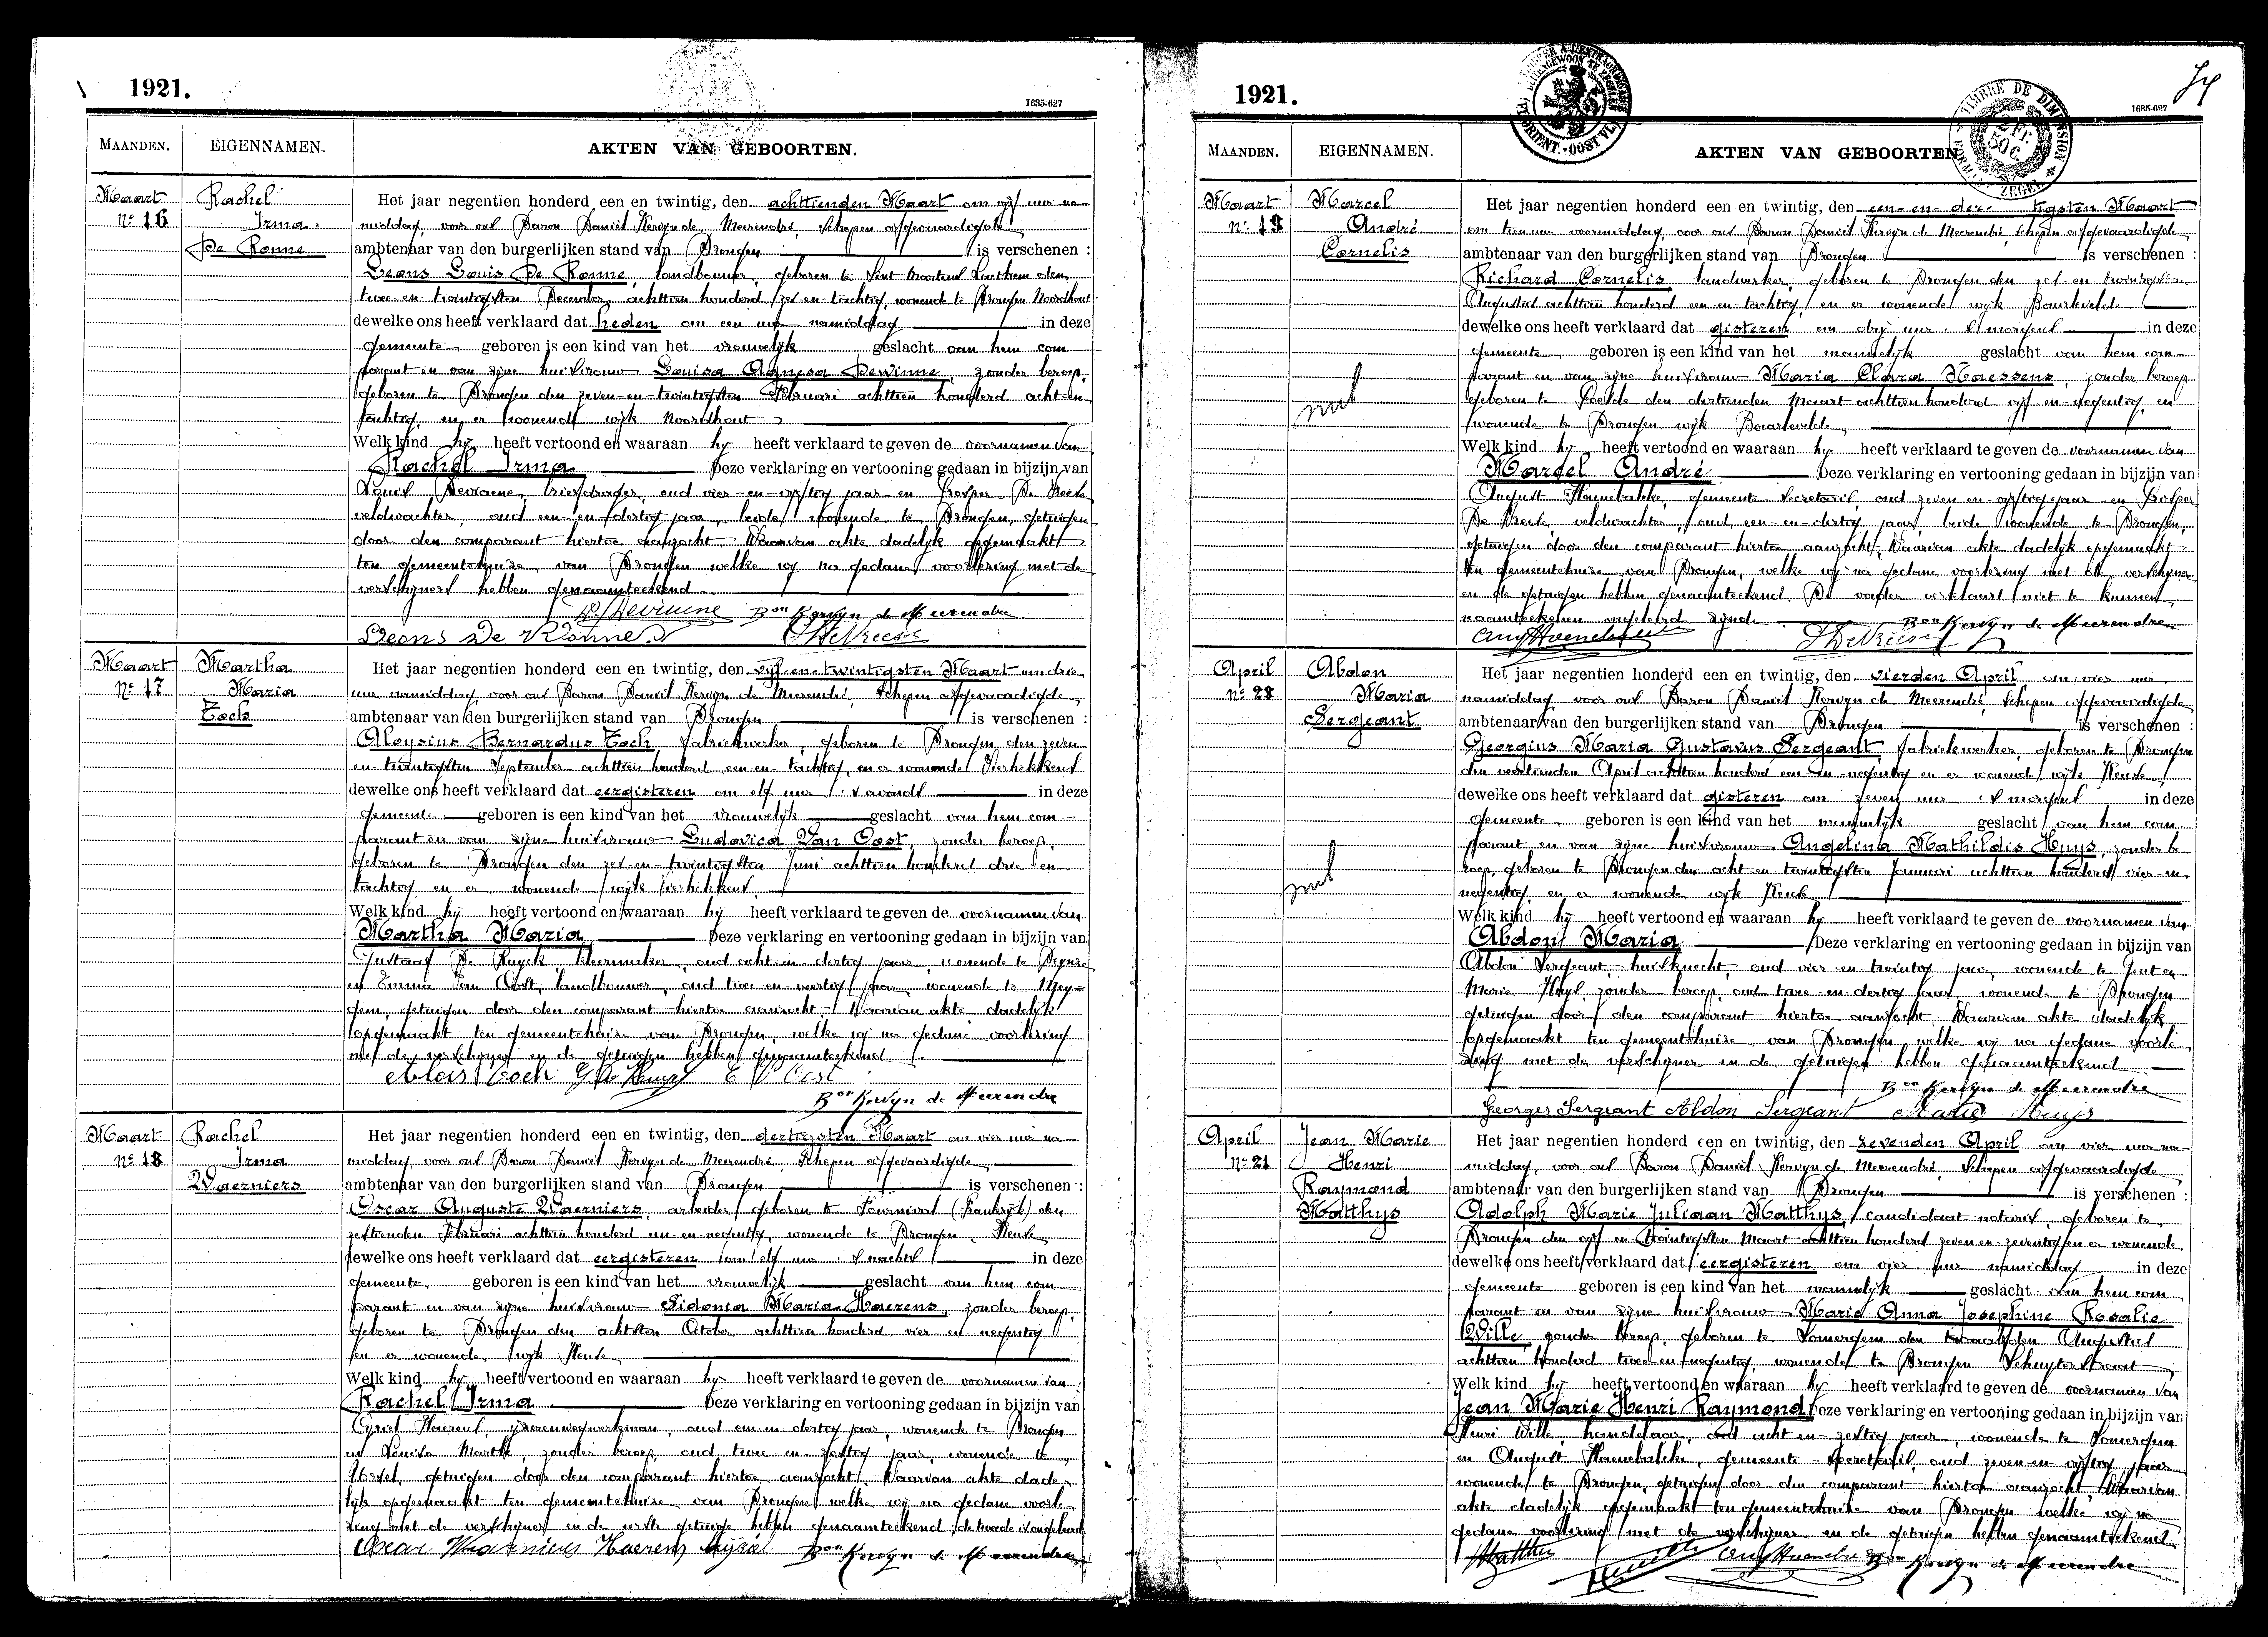 1921.
1635-627
MAANDEN. EIGENNAMEN. AKTEN VAN GEBOORTEN.
Maart Rachel Het jaar negentien honderd een en twintig, den achttienden Maart om vijf uur na
No 16 Irma. middag, voor ons Baron Daniël Kervyn de Meerendré, Schepen afgevaardigde
De Ronne ambtenaar van den burgerlijken stand van Drongen is verschenen :
Leons Louis De Ronne, landbouwer, geboren te Sint Martens Laethem den
twee-en-twintigsten December achttien honderd zes-en-tachtig, wonende te Drongen Noordhout
dewelke ons heeft verklaard dat heden om een uur namiddag in deze
gemeente geboren is een kind van het vrouwelijk geslacht van hem com
parant en van zijne huisvrouw Louisa Agnesa Dewinne, zonder beroep,
geboren te Drongen den zeven-en-twintigsten Februari achttien honderd acht-en
tachtig, en er wonende wijk Noordhout
Welk kind hij heeft vertoond en waaraan hij heeft verklaard te geven de voornamen van
Rachel Irma Deze verklaring en vertooning gedaan in bijzijn van
Louis Deviaene, briefdrager, oud vier-en-vijftig jaar en Prosper De Vreese
veldwachter, oud een-en-dertig jaar, beide wonende te Drongen, getuigen
door den comparant hiertoe aanzocht. Waarvan akte dadelijk opgemaakt
ten gemeentehuize van Drongen welke wij na gedane voorlezing met de
verschijners hebben genaamteekend
Bon Kervyn de Meerendre
Leons De Ronne
Maart Martha Het jaar negentien honderd een en twintig, den vijf-en-twintigsten Maart om drie
No 17 Maria uur namiddag, voor ons Baron Daniël Kervyn de Meerendré, Schepen afgevaardigde
Toch ambtenaar van den burgerlijken stand van Drongen is verschenen :
Aloysius Bernardus Toch, fabriekwerker, geboren te Drongen den zeven
en twintigsten September achttien honderd een-en-tachtig, en er wonende Vierhekkens
dewelke ons heeft verklaard dat eergisteren om elf uur 's avonds in deze
gemeente geboren is een kind van het vrouwelijk geslacht van hem com
parant en van zijne huisvrouw Ludovica Van Oost, zonder beroep,
geboren te Drongen den zes-en-twintigsten Juni achttien honderd drie en
tachtig en er wonende wijk Vierhekkens
Welk kind hij heeft vertoond en waaraan hij heeft verklaard te geven de voornamen van
Martha Maria Deze verklaring en vertooning gedaan in bijzijn van
Gustaaf De Ruyck, kleermaker, oud acht-en-dertig jaar, wonende te Deynze
en Emma Van Oost, landbouwer, oud twee en veertig jaar, wonende te Mey-
gem, getuigen door den comparant hiertoe aanzocht. Waarvan akte dadelijk
opgemaakt ten gemeentehuize van Drongen, welke wij na gedane voorlezing
met de verschijner en de getuigen hebben genaamteekend
Alois Toch E V Oost
Bon Kervyn de Meerendre
Maart Rachel Het jaar negentien honderd een en twintig, den dertigsten Maart om vier uur na
No 18 Irma middag, voor ons Baron Daniël Kervyn de Meerendré, Schepen afgevaardigde
Waerniers ambtenaar van den burgerlijken stand van Drongen is verschenen :
Oscar Auguste Waerniers, arbeider, geboren te Fournival (Frankrijk) den
zestienden Februari achttien honderd een en negentig, wonende te Drongen, Keuze
dewelke ons heeft verklaard dat eergisteren om elf uur 's nachts in deze
gemeente geboren is een kind van het vrouwelijk geslacht van hem com
parant en van zijne huisvrouw Sidonia Maria Haerens, zonder beroep,
geboren te Drongen den achtsten October achttien honderd vier en negentig
en er wonende wijk Keuze
Welk kind hij heeft vertoond en waaraan hij heeft verklaard te geven de voornamen van
Rachel Irma Deze verklaring en vertooning gedaan in bijzijn van
Cyriel Haerens, ijzerenwegwerkman, oud een en dertig jaar, wonende te Drongen
en Louisa zonder beroep, oud twee en zestig jaar, wonende te
getuigen door den comparant hiertoe aanzocht. Waarvan akte dade-
lijk opgemaakt ten gemeentehuize van Drongen welke wij na gedane voorle-
zing met de verschijner en de eerste getuige hebben genaamteekend, de tweede is ongeleerd
Oscar Waerniers Haerens Cyriel Bon Kervyn de Meerendre
1921.
1635-627
MAANDEN. EIGENNAMEN. AKTEN VAN GEBOORTEN
Maart Marcel Het jaar negentien honderd een en twintig, den een-en-der- tigsten Maart
No 19 André om tien uur voormiddag, voor ons Baron Daniël Kervyn de Meerendré, Schepen afgevaardigde
Cornelis ambtenaar van den burgerlijken stand van Drongen is verschenen :
Richard Cornelis, landwerker, geboren te Drongen den zes en twintigsten
Augustus achttien honderd een-en-tachtig, en er wonende wijk Baarlevelde
dewelke ons heeft verklaard dat gisteren om drij uur 's morgens in deze
gemeente geboren is een kind van het mannelijk geslacht van hem com
parant en van zijne huisvrouw Maria Clara Haessens, zonder beroep
geboren te Poesele den dertienden Maart achttien honderd vijf en negentig, en
wonende te Drongen wijk Baarlevelde
Welk kind hij heeft vertoond en waaraan hij heeft verklaard te geven de voornamen van
Marcel André Deze verklaring en vertooning gedaan in bijzijn van
August Haenebalcke, gemeente secretaris, oud zeven en vijftig jaar en Prosper
De Vreese, veldwachter, oud een-en-dertig jaar, beide wonende te Drongen,
getuigen door den comparant hiertoe aanzocht. Waarvan akte dadelijk opgemaakt
ten gemeentehuize van Drongen, welke wij na gedane voorlezing met de verschijner
en de getuigen hebben genaamteekend. De vader verklaart niet te kunnen
naamteekenen ongeleerd zijnde Bon Kervyn de Meerendre
April Abdon Het jaar negentien honderd een en twintig, den vierden April om vier uur
Maria namiddag, voor ons Baron Daniël Kervyn de Meerendré, Schepen afgevaardigde
Sergeant ambtenaar van den burgerlijken stand van Drongen is verschenen :
Georgius Maria Gustavus Sergeant, fabriekwerker, geboren te Drongen
den veertienden April achttien honderd een en negentig en er wonende wijk Keuze
dewelke ons heeft verklaard dat gisteren om zeven uur 's morgens in deze
gemeente geboren is een kind van het mannelijk geslacht van hem com
parant en van zijne huisvrouw Angelina Mathildis Huys, zonder be
roep, geboren te Drongen den acht en twintigsten Januari achttien honderd vier en
negentig en er wonende wijk Keuze
Welk kind hij heeft vertoond en waaraan hij heeft verklaard te geven de voornamen van
Abdon Maria Deze verklaring en vertooning gedaan in bijzijn van
Abdon Sergeant, huisknecht, oud vier en twintig jaar, wonende te Gent en
Marie Huys, zonder beroep, oud twee en dertig jaar, wonende te Drongen
getuigen door den comparant hiertoe aanzocht. Waarvan akte dadelijk
opgemaakt ten gemeentehuize van Drongen welke wij na gedane voorle
zing met de verschijner en de getuigen hebben genaamteekend
Bon Kervyn de Meerendre
Georges Sergeant Abdon Sergeant Marie Huys
April Jean Marie Het jaar negentien honderd een en twintig, den zevenden April om vier uur na-
No 21 Henri middag, voor ons Baron Daniël Kervyn de Meerendré, Schepen afgevaardigde
Raymond ambtenaar van den burgerlijken stand van Drongen is verschenen :
Matthys Adolph Marie Juliaan Matthys, candidaat notaris, geboren te
Drongen den vijf en twintigsten Maart achttien honderd zeven en zeventig en er wonende
dewelke ons heeft verklaard dat eergisteren om vier uur namiddag in deze
gemeente geboren is een kind van het mannelijk geslacht van hem com
parant en van zijne huisvrouw Marie Anna Josephine Rosalie
Wille, zonder beroep, geboren te Somergem den twaalfden Augustus
achttien honderd twee en negentig, wonende te Drongen Schuyterstraat
Welk kind hij heeft vertoond en waaraan hij heeft verklaard te geven de voornamen van
Jean Marie Henri Raymond Deze verklaring en vertooning gedaan in bijzijn van
Henri Wille, handelaar, oud acht en zestig jaar, wonende te Somergem
en August Haenebalcke, gemeente-secretaris, oud zeven en vijftig jaar
wonende te Drongen, getuigen door den comparant hiertoe aanzocht. Waarvan
akte dadelijk opgemaakt ten gemeentehuize van Drongen welke wij na
gedane voorlezing met de verschijner en de getuigen hebben genaamteekend
Bon Kervyn de Meerendre